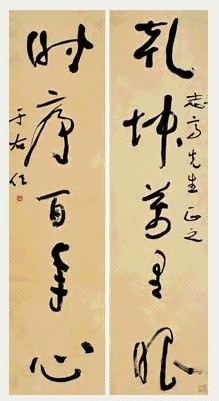 乾坤萬里眼
志高先生正之
时序百年心
于右任